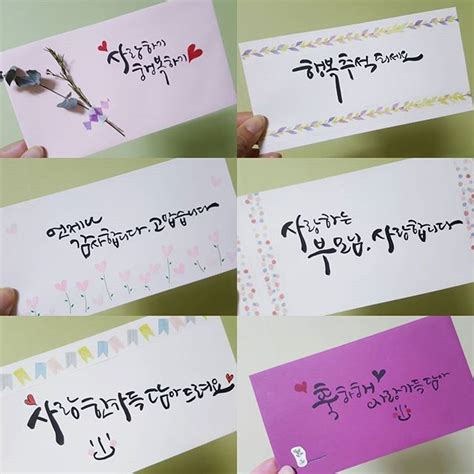 사랑하기
행복하기
행복 추석 되세요
언제나
감사합니다. 고맙습니다
사랑하는
부모님. 사랑합니다
사랑 한가득 담아 드려요
축하해
사랑가득담아